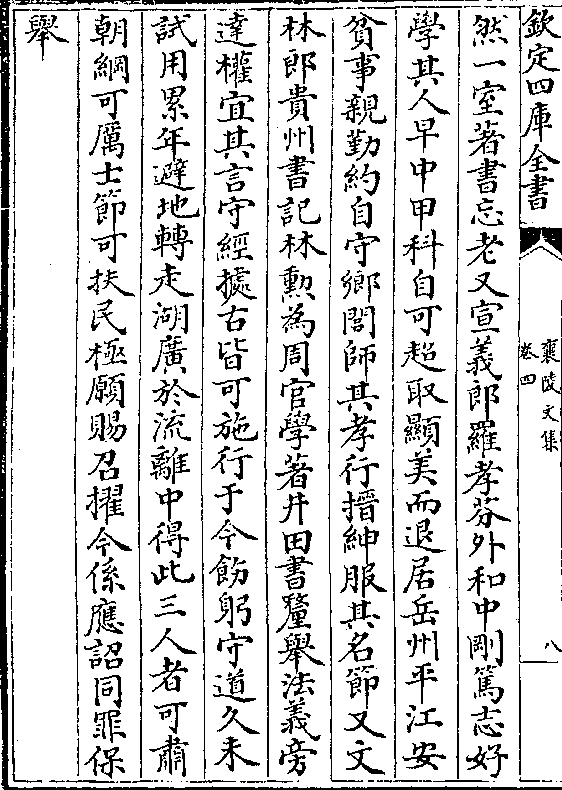 欽定四庫全書
襄陵文集
卷四
八
然一室著書忘老又宣義郎羅孝芬外和中剛篤志好
學其人早中甲科自可超取顯美而退居岳州平江安
貧事親勤約自守鄉閭師其孝行搢紳服其名節又文
林郎貴州書記林勲為周官學著井田書釐舉法義旁
達權宜其言守經據古皆可施行于今飭躬守道久未
試用累年避地轉走湖廣於流離中得此三人者可肅
朝綱可厲士節可扶民極願賜召擢今係應詔同罪保
舉